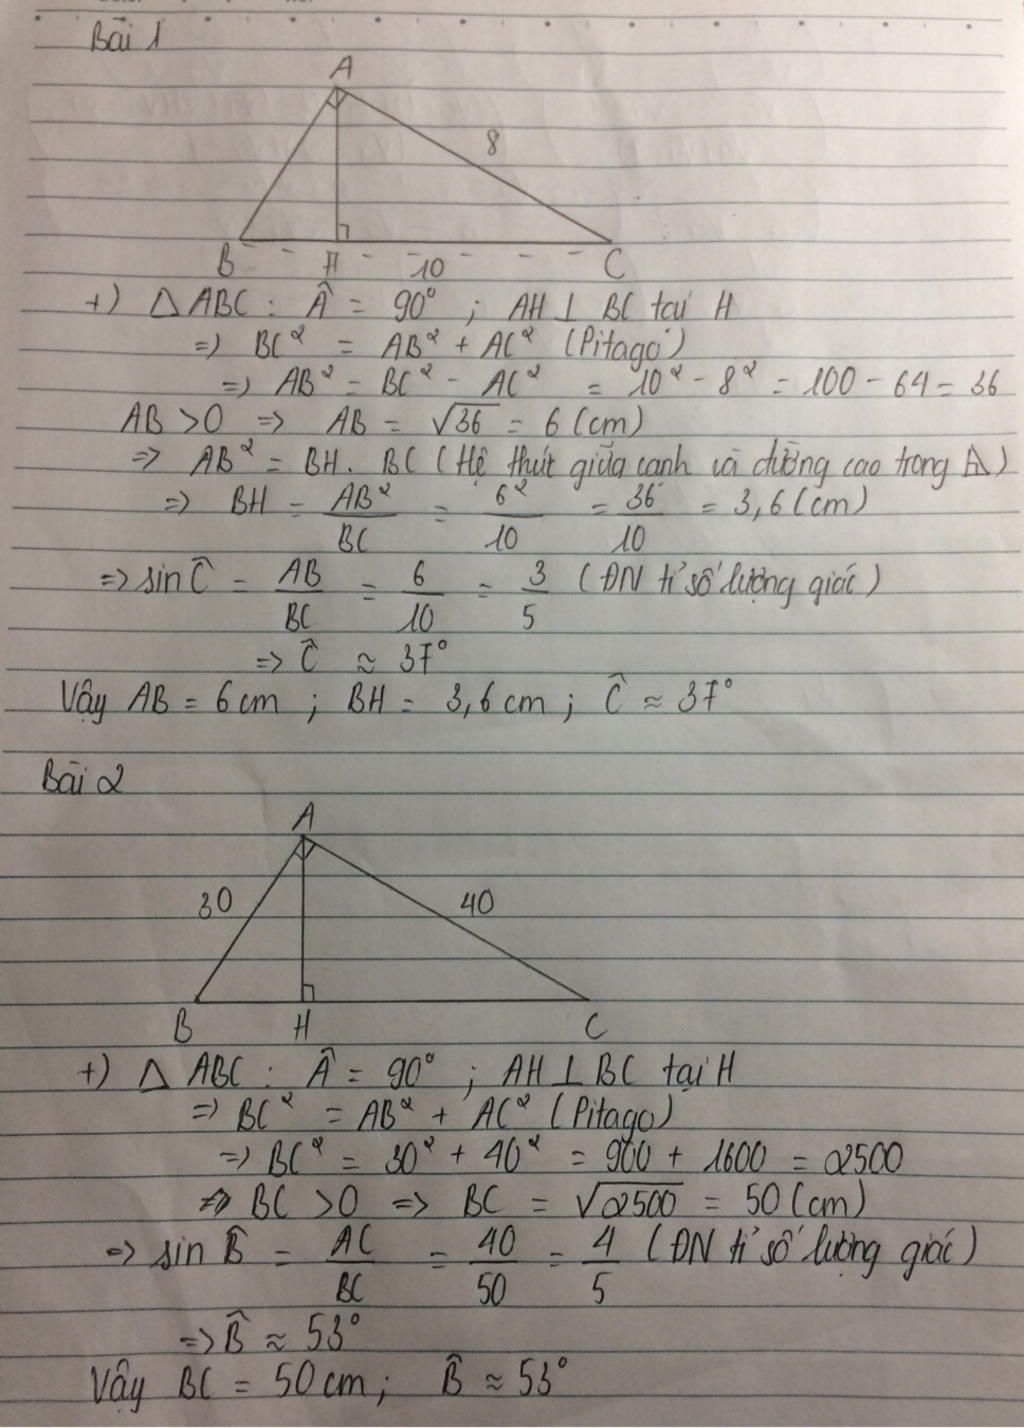 Bài 1
A
8
B H 10 C
+) △ ABC : Â = 90° ; AH ⊥ BC tại H
=> BC² = AB² + AC² (Pitago)
=> AB² = BC² - AC² = 10² - 8² = 100 - 64 = 36
AB > 0 => AB = √36 = 6 (cm)
=> AB² = BH. BC (Hệ thức giữa cạnh và đường cao trong △)
=> BH = AB²/BC = 6²/10 = 36/10 = 3,6 (cm)
=> sin Ĉ = AB/BC = 6/10 = 3/5 (ĐN tỉ số lượng giác)
=> Ĉ ≈ 37°
Vậy AB = 6 cm ; BH = 3,6 cm ; Ĉ ≈ 37°
Bài 2
A
30 40
B H C
+) △ ABC : Â = 90° ; AH ⊥ BC tại H
=> BC² = AB² + AC² (Pitago)
=> BC² = 30² + 40² = 900 + 1600 = 2500
=> BC > 0 => BC = √2500 = 50 (cm)
=> sin B̂ = AC/BC = 40/50 = 4/5 (ĐN tỉ số lượng giác)
=> B̂ ≈ 53°
Vậy BC = 50 cm ; B̂ ≈ 53°